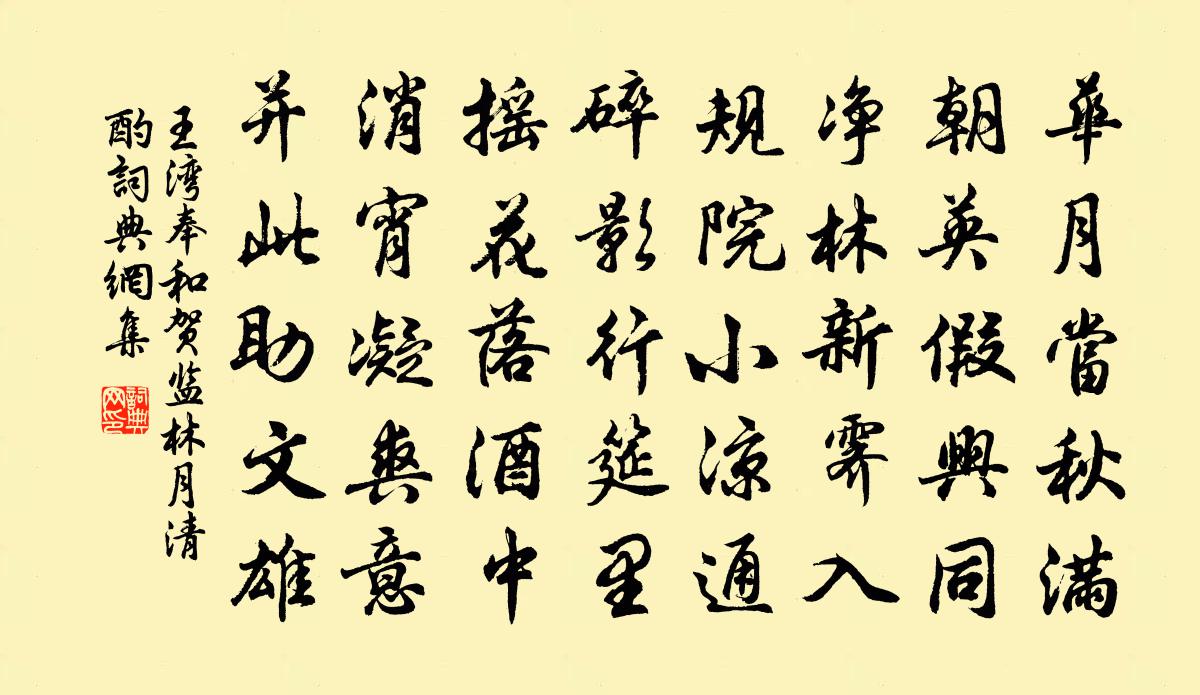 華月當秋滿
朝英假興同
净林新霽入
規院小涼通
碎影行筵里
摇花落酒中
消宵凝爽意
并此助文雄
王湾奉和贺监林月清
酌詞典網集
詞典
网印